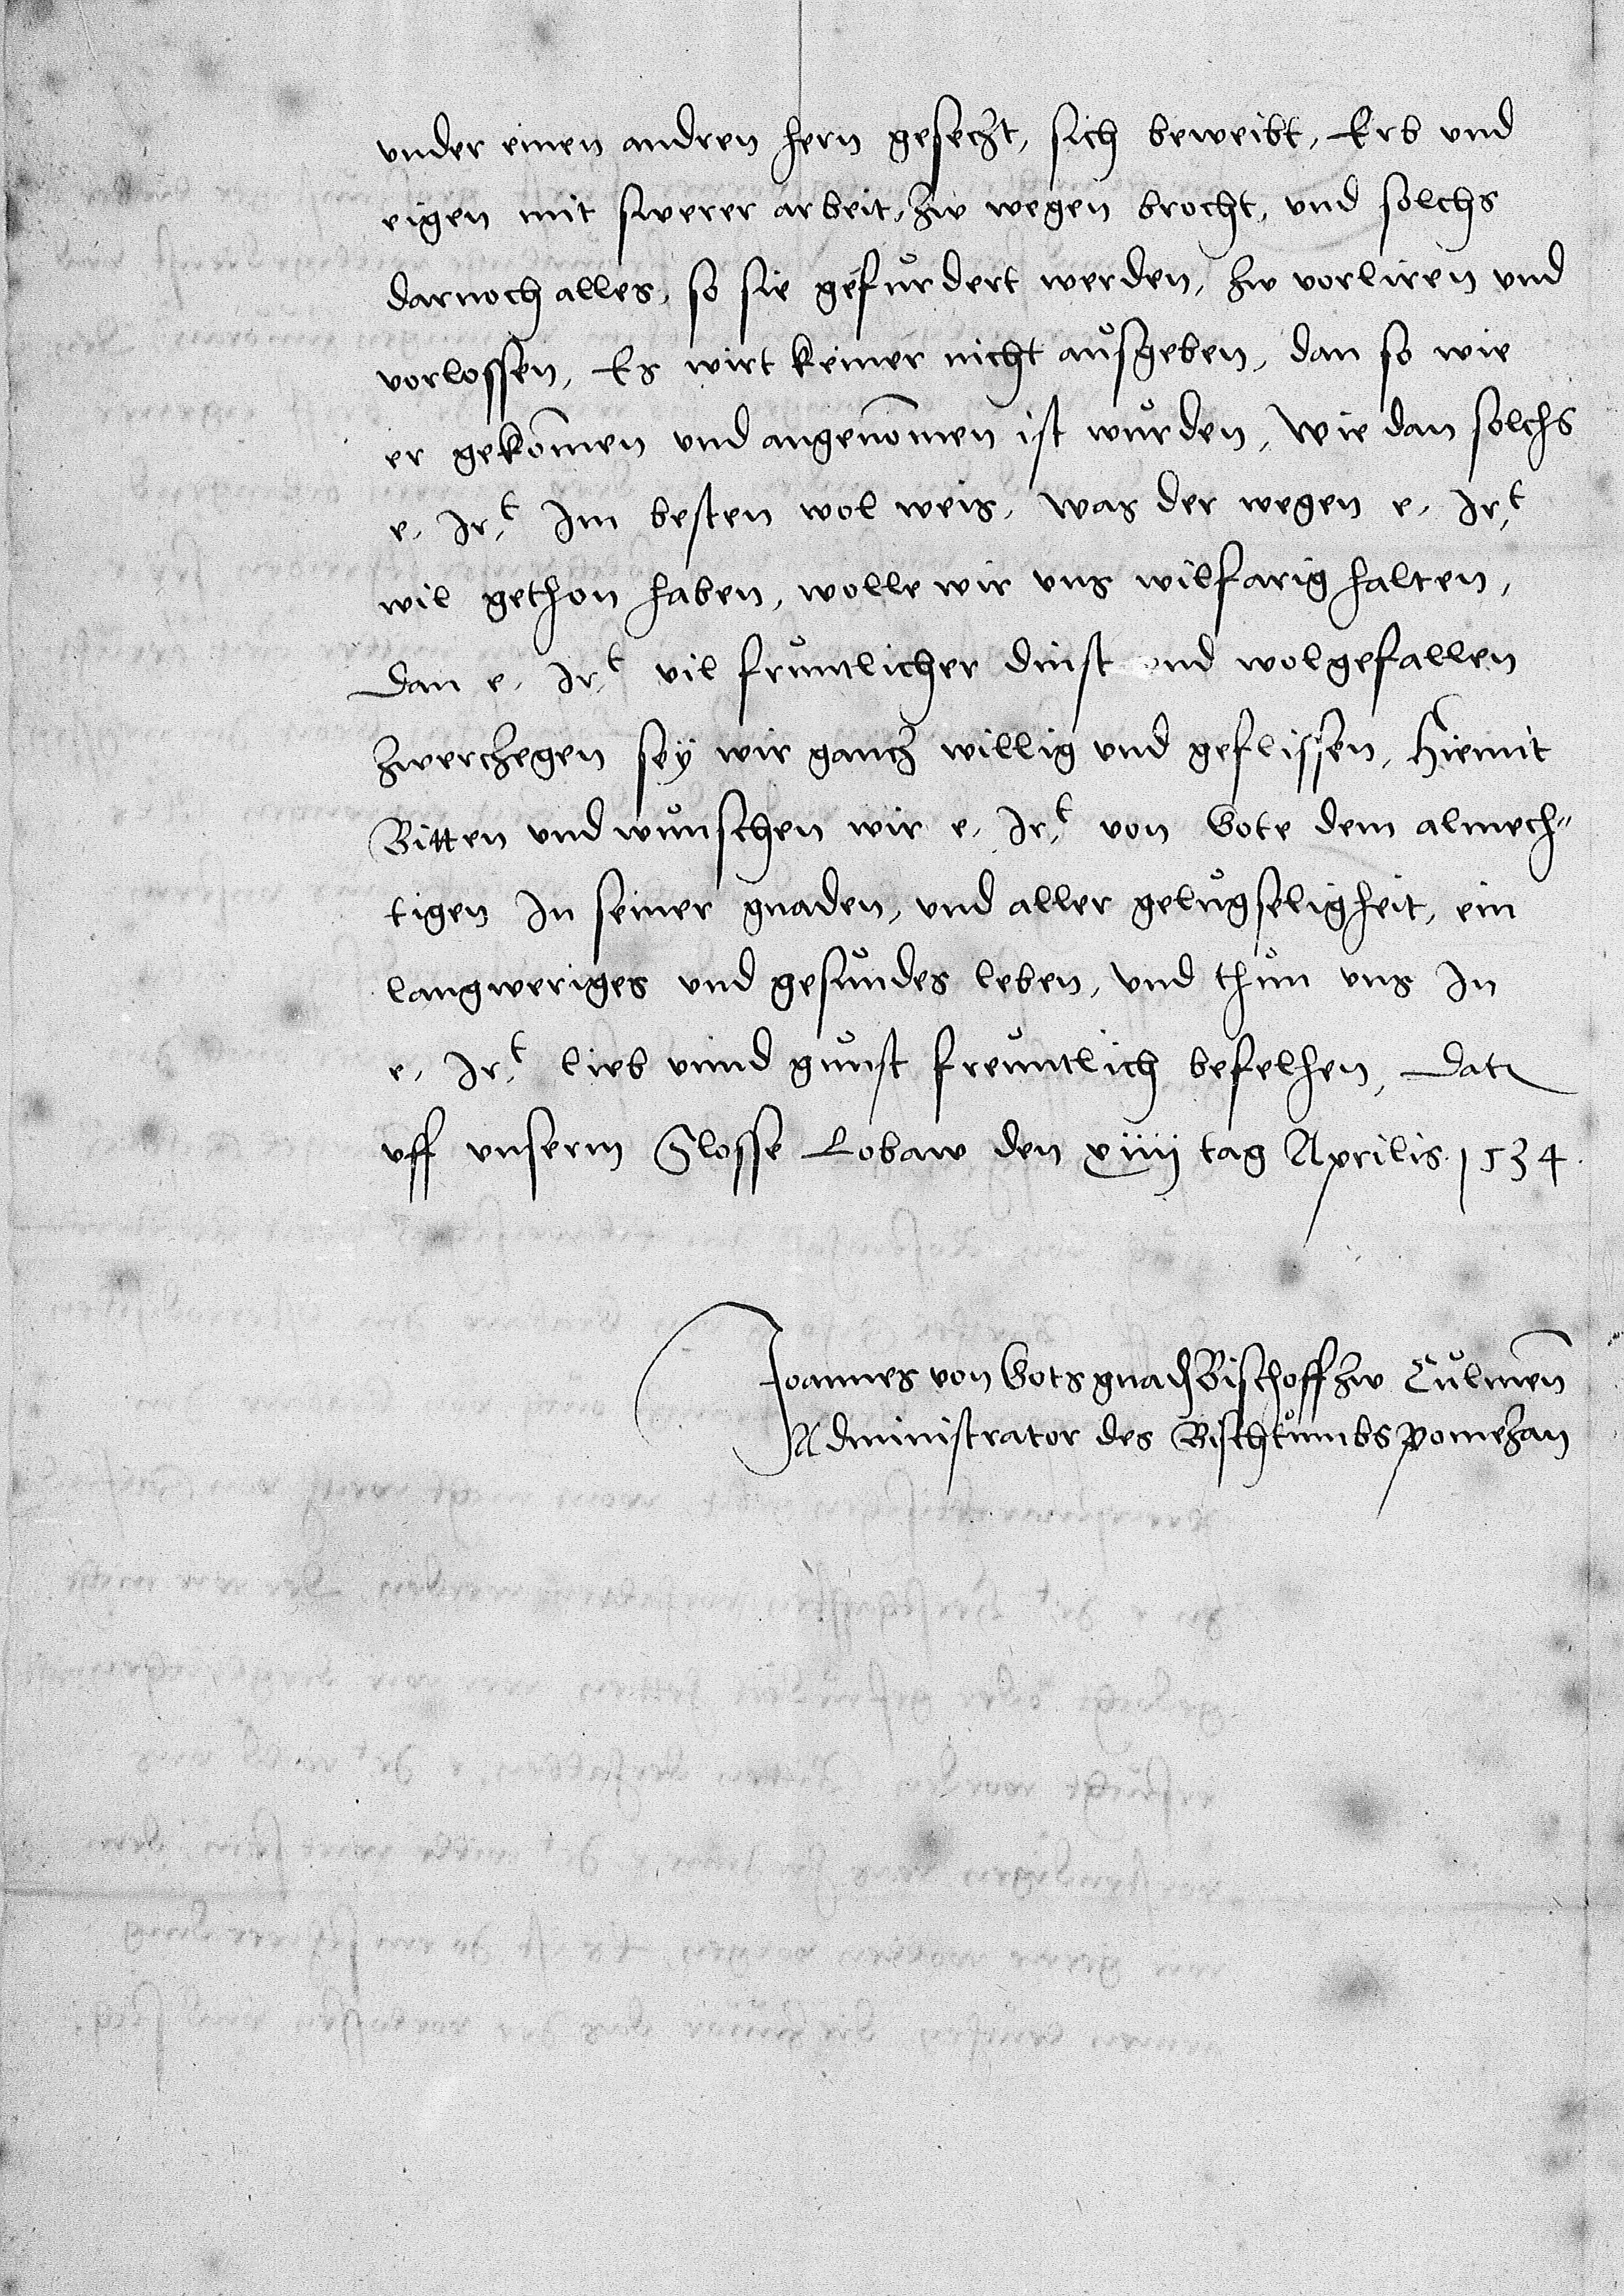 vnder einen andren hern geseczt, sich beweibt, Erb vnd
eigen mit swerer arbeit, zw wegen brocht, vnd solchs
darnoch alles, so sie gefůrdert werden, zw vorliren vnd
vorlossen, Es wirt keiner nicht aůsgeben, dan so wie
er gekom̄en vnd angenom̄en ist wůrden, Wie dan solchs
e. Ir.t Im besten wol weis, Was der wegen e. Ir.t
wil gethon haben, wolle wir vns wilfarig halten,
Dan e. Ir.t vil frůntlicher dinst vnd wolgefallen
zwerczegen seÿ wir gancz willig vnd geflissen, Hiemit
Bitten vnd wůnschen wir e. Ir.t von Gote dem almech"
tigen In seiner gnaden, vnd aller gelůgseligheit, ein
langweriges vnd gesůndes leben, vnd thůn vns In
e. Ir.t lieb vnnd gůnst freůntlich befelhen, Dat
vff vnserm Slosse Lobaw den xiiij tag Aprilis. 1534.
Joannes von Gots gnad Bischoff zw Cůlmen̄
Administrator des Bischtůmbs Pomezan